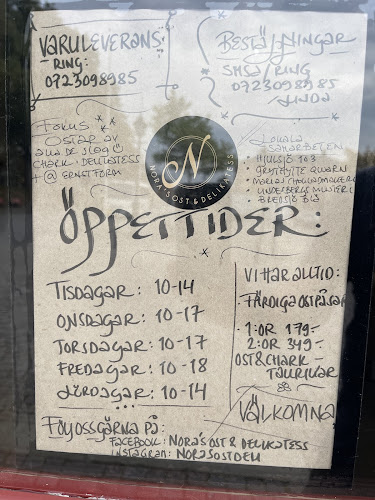 VARULEVERANS:
RING:
0723098985
BESTÄLLNINGAR
SMSA/RING
0723098985
/LINDA
FOKUS
OSTAR AV
ALLA DE SLAG
CHARK - DELIKATESS
LOKALA
SAMARBETEN
• HJULSJÖ 103
• GRYTHYTTE QVARN
N
NORA'S OST & DELIKATESS
ÖPPETTIDER:
TISDAGAR: 10-14
ONSDAGAR: 10-17
TORSDAGAR: 10-17
FREDAGAR: 10-18
LÖRDAGAR: 10-14
VI HAR ALLTID:
FÄRDIGA OSTPÅSAR
• 1:OR 179:-
• 2:OR 349:-
OST & CHARK -
TALLRIKAR
VÄLKOMNA
FÖLJ OSS GÄRNA PÅ:
FACEBOOK: NORA'S OST & DELIKATESS
INSTAGRAM: NORASOSTDELI